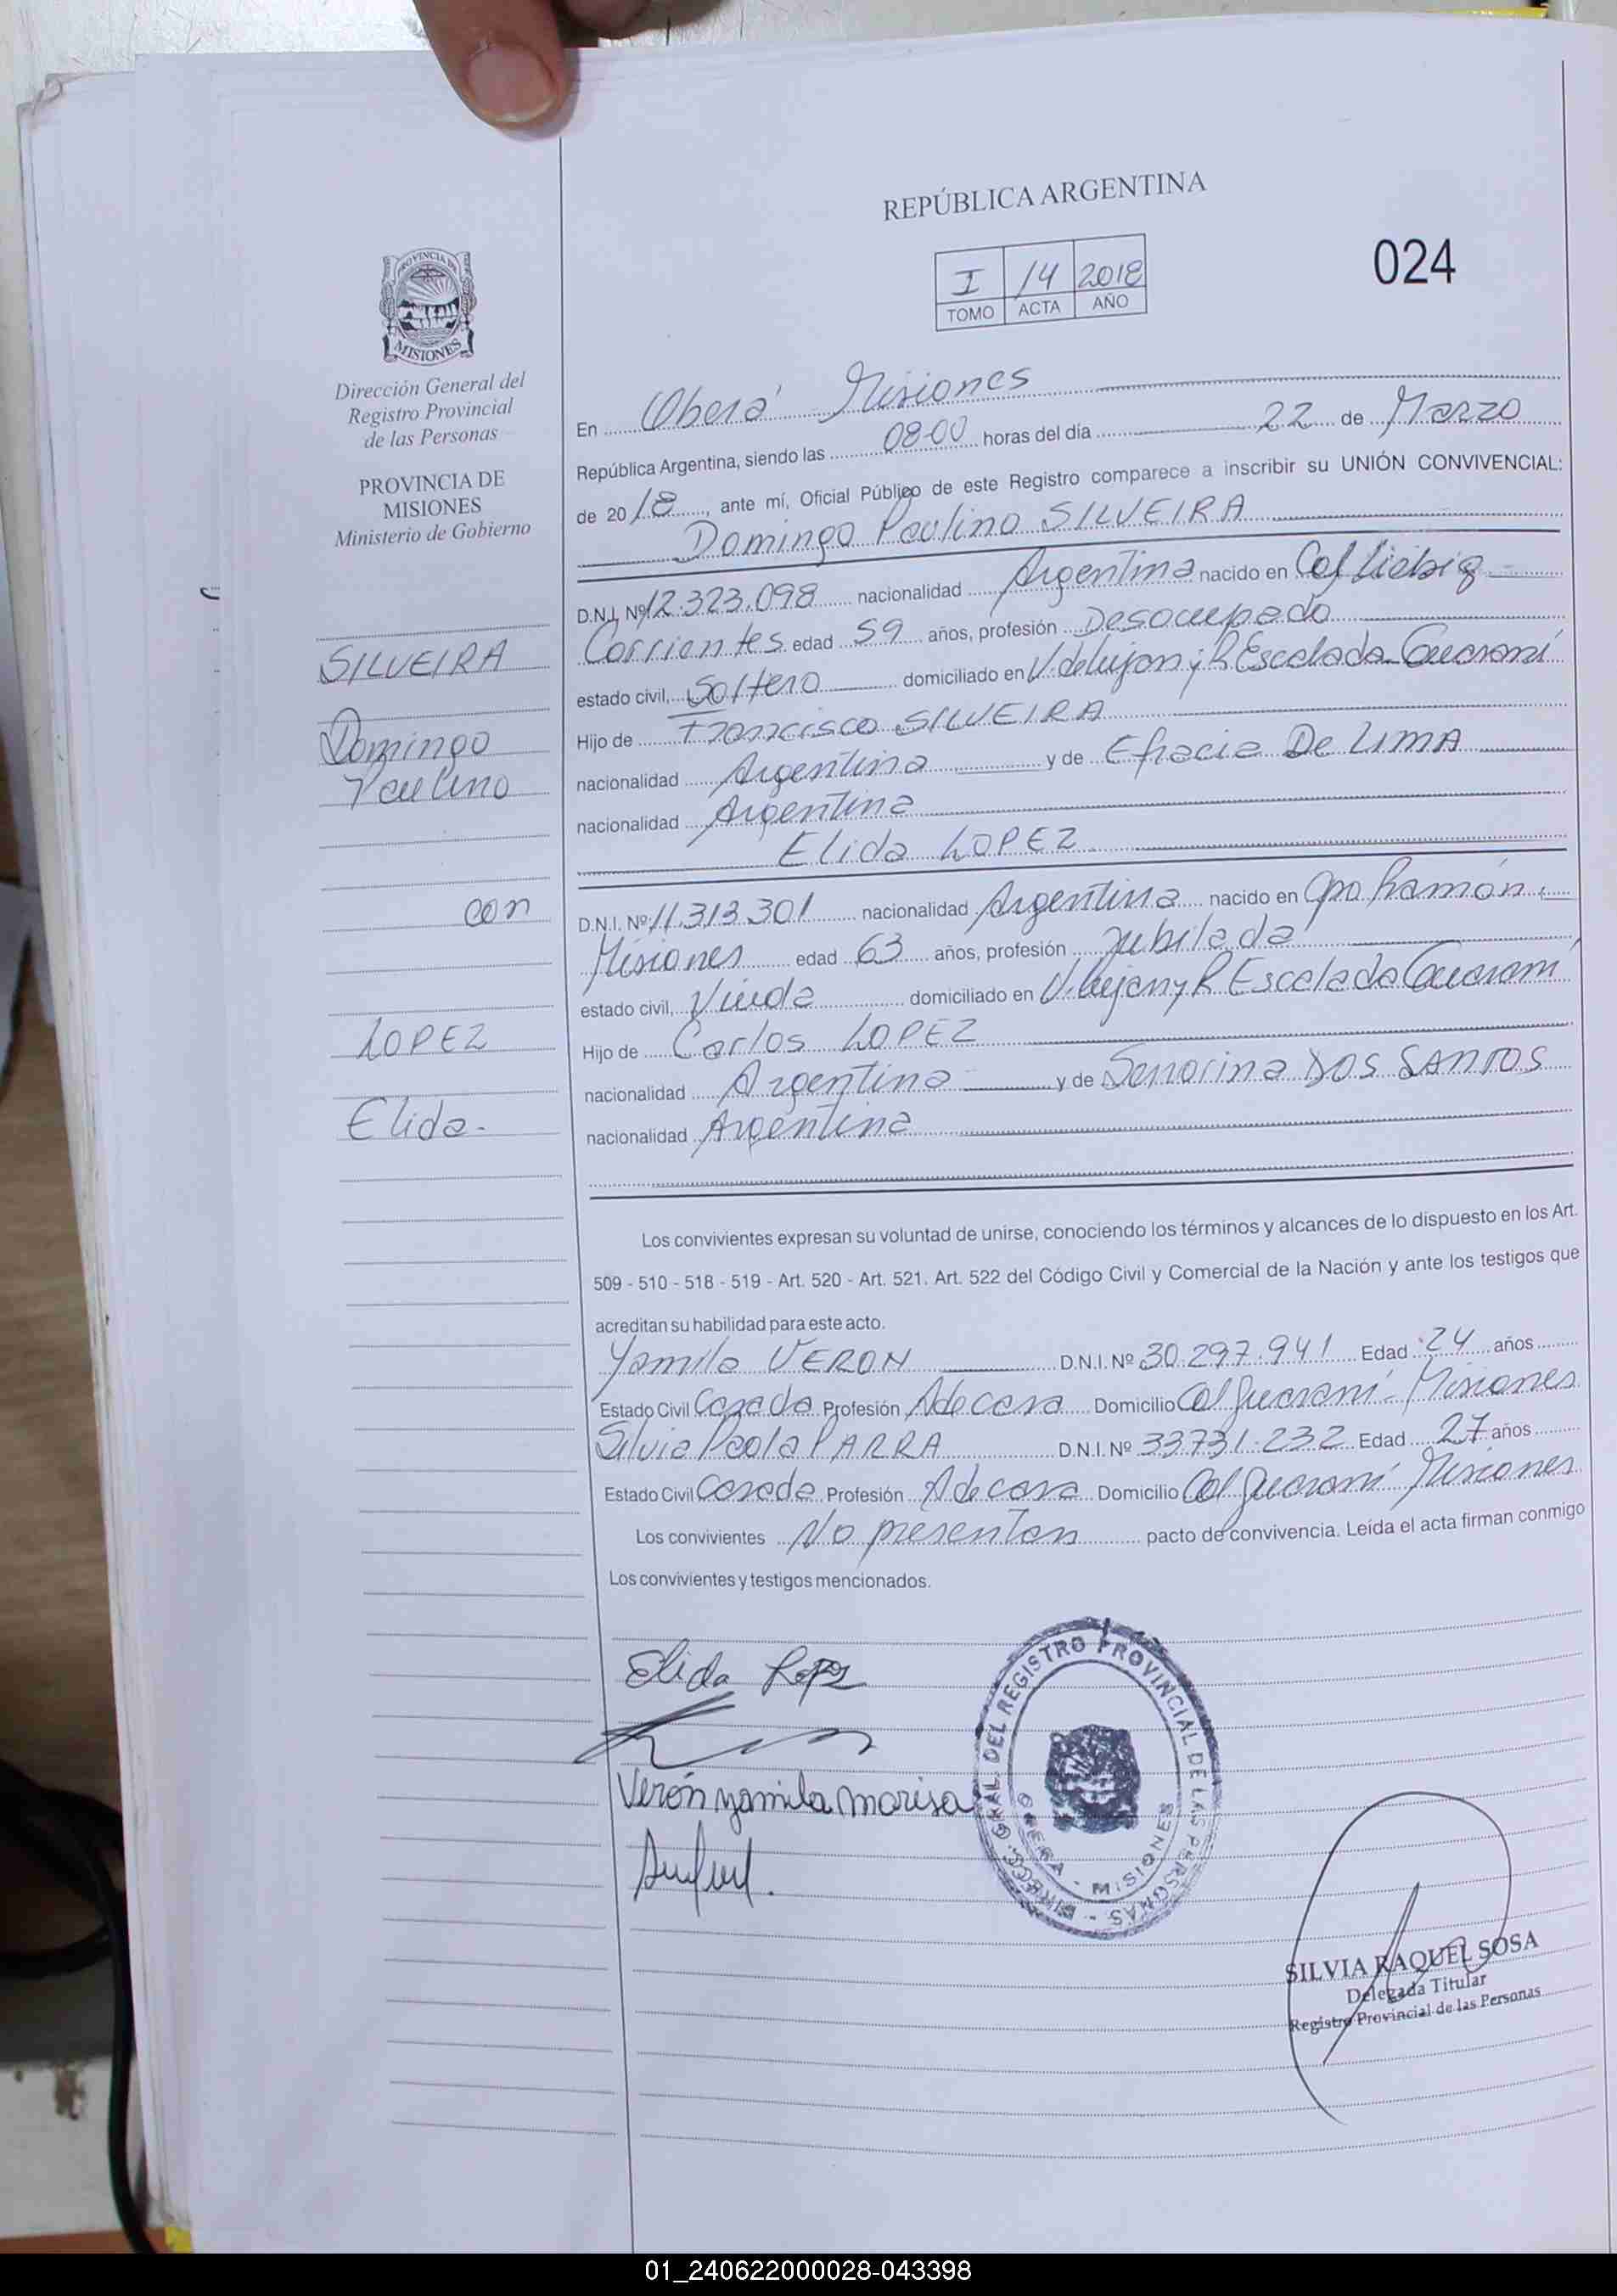 REPÚBLICA ARGENTINA
I 14 2018
TOMO ACTA AÑO
024
PROVINCIA DE
MISIONES
Dirección General del
Registro Provincial
de las Personas
PROVINCIA DE
MISIONES
Ministerio de Gobierno
SILVEIRA
Domingo
Paulino
con
LOPEZ
Elida.
En Oberá Misiones
República Argentina, siendo las 08-00 horas del día 22 de Marzo
de 2018, ante mí, Oficial Público de este Registro comparece a inscribir su UNIÓN CONVIVENCIAL:
Domingo Paulino SILVEIRA
D.N.I. Nº 12.323.098 nacionalidad Argentina nacido en Col Liebig
Corrientes edad 59 años, profesión Desocupado
estado civil, Soltero domiciliado en V. de Lujan y R Escalada Guaraní
Hijo de Francisco SILVEIRA
nacionalidad Argentina y de Efracia De LIMA
nacionalidad Argentina
Elida LOPEZ
D.N.I. Nº 11.313.301 nacionalidad Argentina nacido en Gpo Ramón
Misiones edad 63 años, profesión Jubilada
estado civil, Viuda domiciliado en V. Lujan y R Escalada Guaraní
Hijo de Carlos LOPEZ
nacionalidad Argentina y de Senorina DOS SANTOS
nacionalidad Argentina
Los convivientes expresan su voluntad de unirse, conociendo los términos y alcances de lo dispuesto en los Art.
509 - 510 - 518 - 519 - Art. 520 - Art. 521. Art. 522 del Código Civil y Comercial de la Nación y ante los testigos que
acreditan su habilidad para este acto.
Yamila VERON D.N.I. Nº 30.297.941 Edad 24 años
Estado Civil Casada Profesión A de casa Domicilio Col Guaraní - Misiones
Silvia Paola PARRA D.N.I. Nº 33.731.232 Edad 27 años
Estado Civil Casada Profesión A de casa Domicilio Col Guaraní Misiones
Los convivientes No presentan pacto de convivencia. Leída el acta firman conmigo
Los convivientes y testigos mencionados.
Elida Lopez
Verón yamila marisa
DIRECC. GRAL. DEL REGISTRO PROVINCIAL DE LAS PERSONAS -
OBERA - MISIONES
SILVIA RAQUEL SOSA
Delegada Titular
Registro Provincial de las Personas
01_240622000028-043398